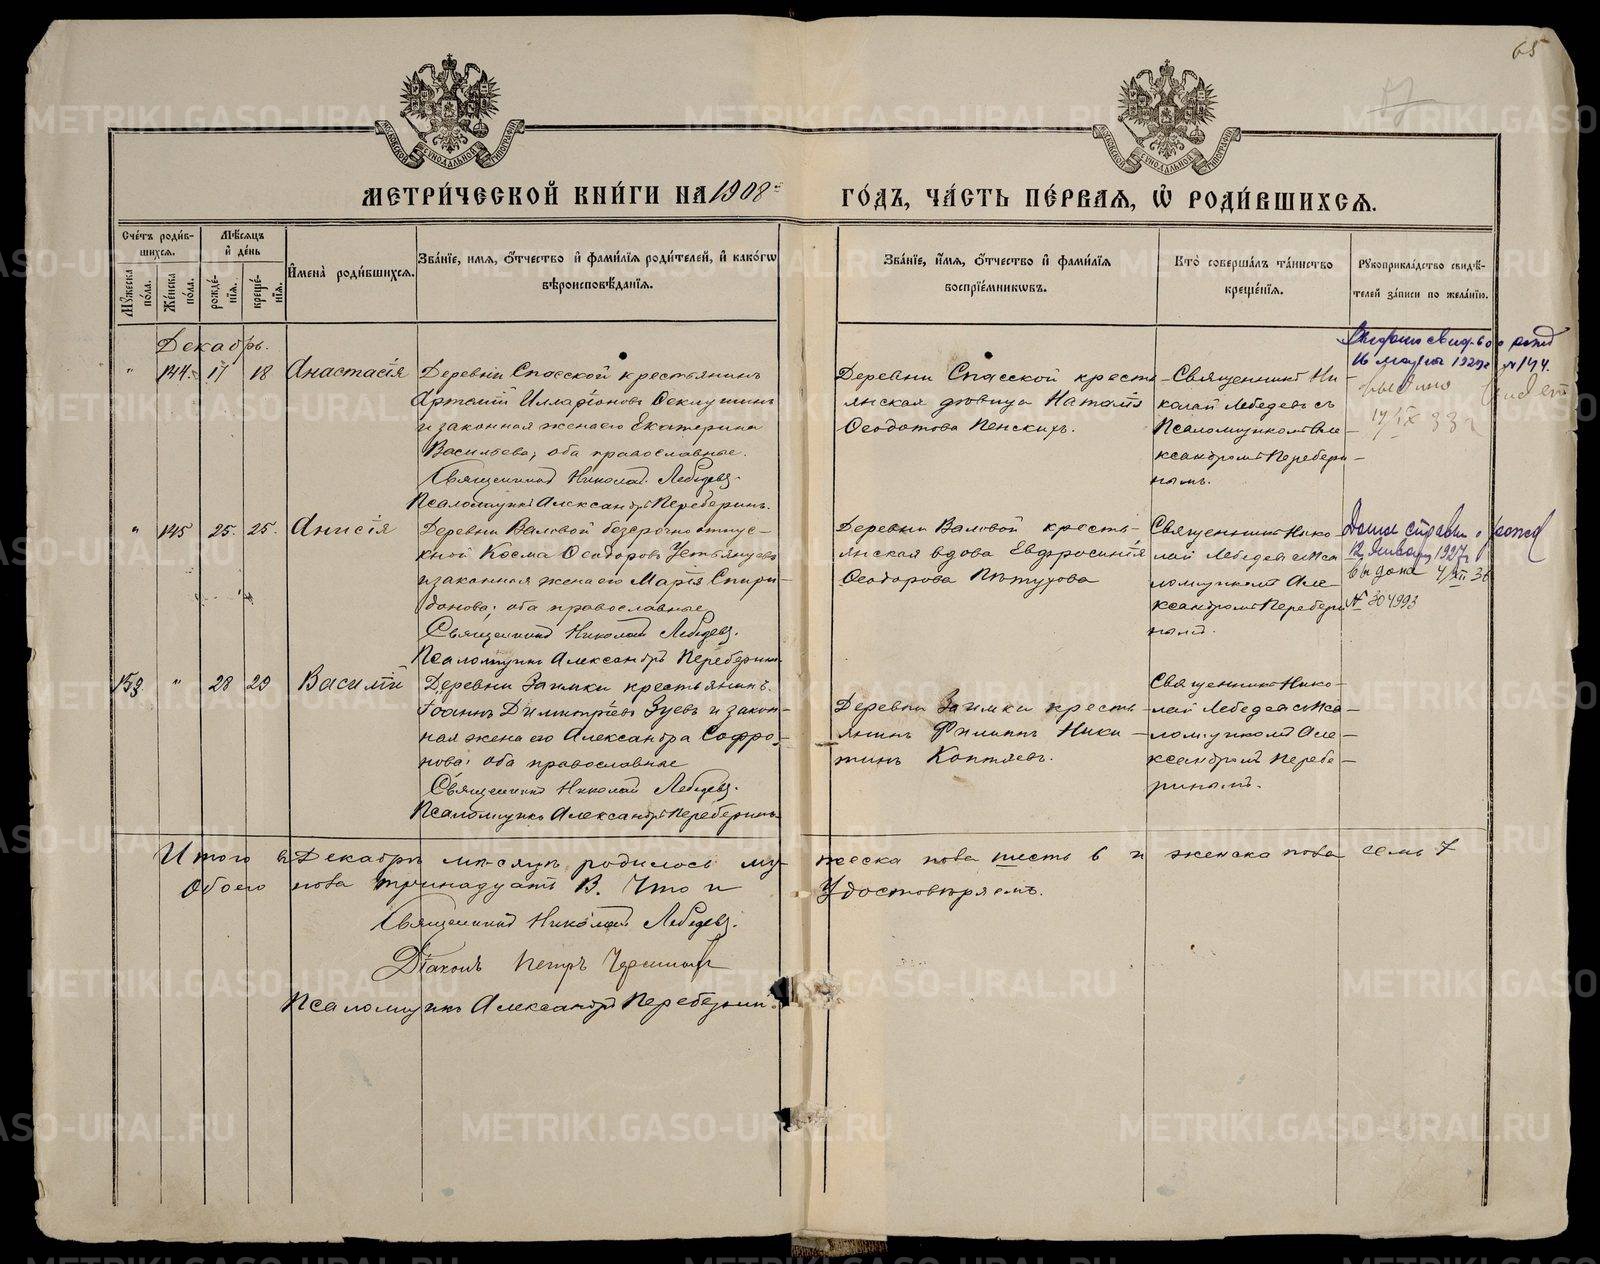 65
МОСКОВСКОЙ СѴНОДАЛЬНОЙ ТИПОГРАФІИ
МОСКОВСКОЙ СѴНОДАЛЬНОЙ ТИПОГРАФІИ
МЕТРИ́ЧЕСКОЙ КНИ́ГИ НА 1908 ГО́ДЪ, ЧА́СТЬ ПЕ́РВАЯ, Ѡ РОДИ́ВШИХСЯ.
Сче́тъ роди́в-
шихся.
Мѣ́сяцъ
и҆ де́нь
Мꙋ́жеска по́ла.
Же́нска по́ла.
рожде́-
нія.
креще́-
нія.
И҆мена̀ роди́вшихся.
Зва́ніе, и҆мя, ѻ҆́тчество и҆ фами́лія роди́телей, и҆ како́гѡ
вѣроисповѣ́данія.
Зва́ніе, и҆́мя, ѻ҆́тчество и҆ фами́лія
воспріе́мникѡвъ.
Кто̀ соверша́лъ та́инство
креще́нія.
Рꙋкоприкла́дство свидѣ́-
телей за́писи по жела́нію.
Декабрь.
" 144. 17 18 Анастасія
Деревни Спасской крестьянинъ
Артемій Илларіоновъ Секлушинъ
и законная жена его Екатерина
Васильева, оба православные.
Священникъ Николай Лебедевъ.
Псаломщикъ Александръ Переберинъ.
Деревни Спасской кресть-
янская дѣвица Наталія
Ѳеодотова Пенскихъ.
Священникъ Ни-
колай Лебедевъ съ
Псаломщикомъ Але-
ксандромъ Перебери-
нымъ.
16 марта 192 г № 144.
17/IX 33 г
" 145 25. 25. Анисія
Деревни Валовой безсрочно отпус-
кной Косма Ѳеодоровъ Устьянцевъ
и законная жена его Марія Спири-
донова; оба православные
Священникъ Николай Лебедевъ.
Псаломщикъ Александръ Переберинъ
Деревни Валовой кресть-
янская вдова Евфросинія
Ѳеодорова Пѣтухова
Священникъ Нико-
лай Лебедевъ съ Пса-
ломщикомъ Але-
ксандромъ Перебери-
нымъ.
12 января 1927 г
выдана 4/XII 36
№ 304993
153. " 28 29 Василій
Деревни Заимки крестьянинъ
Іоаннъ Димитріевъ Зуевъ и закон-
ная жена его Александра Софро-
нова; оба православные
Священникъ Николай Лебедевъ.
Псаломщикъ Александръ Переберинъ
Деревни Заимки кресть-
янинъ Филиппъ Ники-
тинъ Коптяевъ.
Священникъ Нико-
лай Лебедевъ съ Пса-
ломщикомъ Але-
ксандромъ Перебе-
ринымъ.
Итого въ Декабрѣ мѣсяцѣ родилось му-жеска пола шесть 6 и женска пола семь 7
Обоего пола тринадцать 13. Что и Удостовѣряемъ.
Священникъ Николай Лебедевъ.
Діаконъ Петръ
Псаломщикъ Александръ Переберинъ.
METRIKI.GASO-URAL.RU